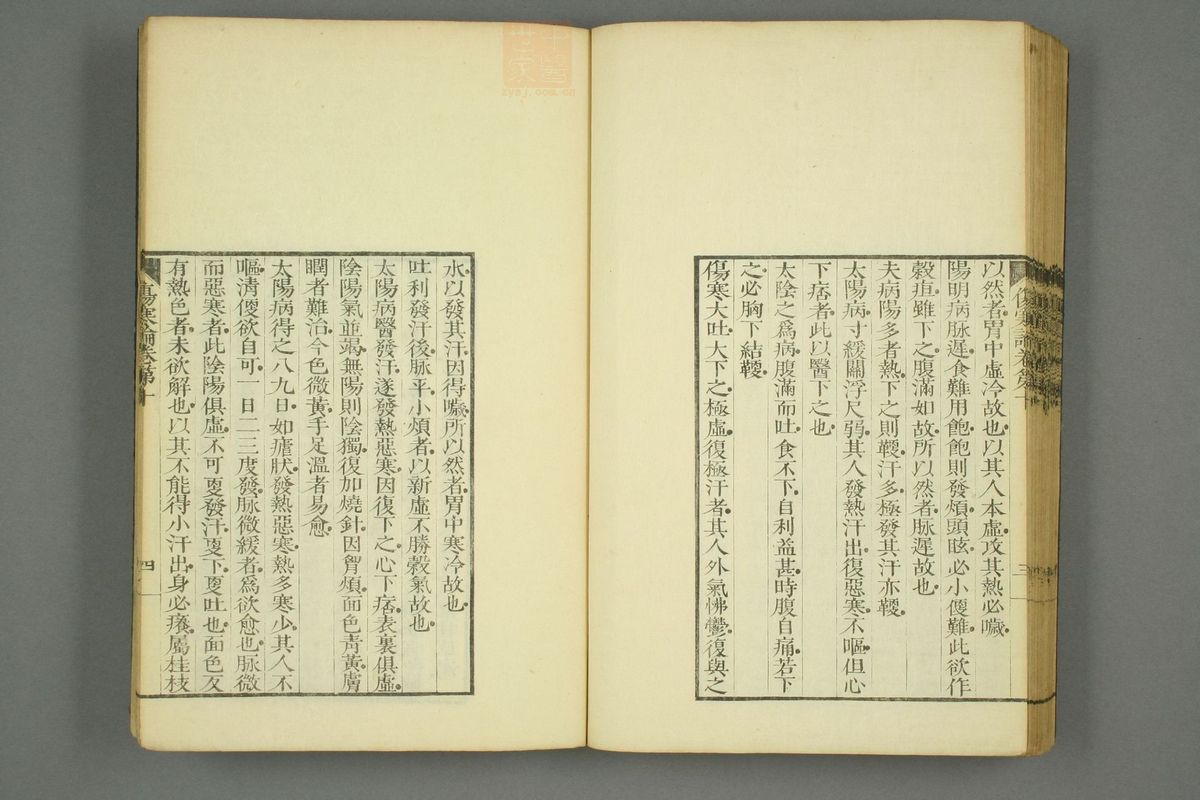 以然者胃中虛冷故也以其人本虛攻其熱必噦
陽明病脉遲食難用飽飽則發煩頭眩必小便難此欲作
穀疸雖下之腹滿如故所以然者脉遲故也
夫病陽多者熱下之則鞕汗多極發其汗亦鞕
太陽病寸緩關浮尺弱其人發熱汗出復惡寒不嘔但心
下痞者此以醫下之也
太陰之爲病腹滿而吐食不下自利益甚時腹自痛若下
之必胸下結鞕
傷寒大吐大下之極虛復極汗者其人外氣怫鬱復與之
水以發其汗因得噦所以然者胃中寒冷故也
吐利發汗後脉平小煩者以新虛不勝穀氣故也
太陽病醫發汗遂發熱惡寒因復下之心下痞表裏俱虛
陰陽氣並竭無陽則陰獨復加燒針因胷煩面色青黃膚
瞤者難治今色微黃手足溫者易愈
太陽病得之八九日如瘧狀發熱惡寒熱多寒少其人不
嘔清便欲自可一日二三度發脉微緩者爲欲愈也脉微
而惡寒者此陰陽俱虛不可更發汗更下更吐也面色反
有熱色者未欲解也以其不能得小汗出身必癢屬桂枝
傷寒論卷第十
三
傷寒論卷第十
四
zysj.com.cn